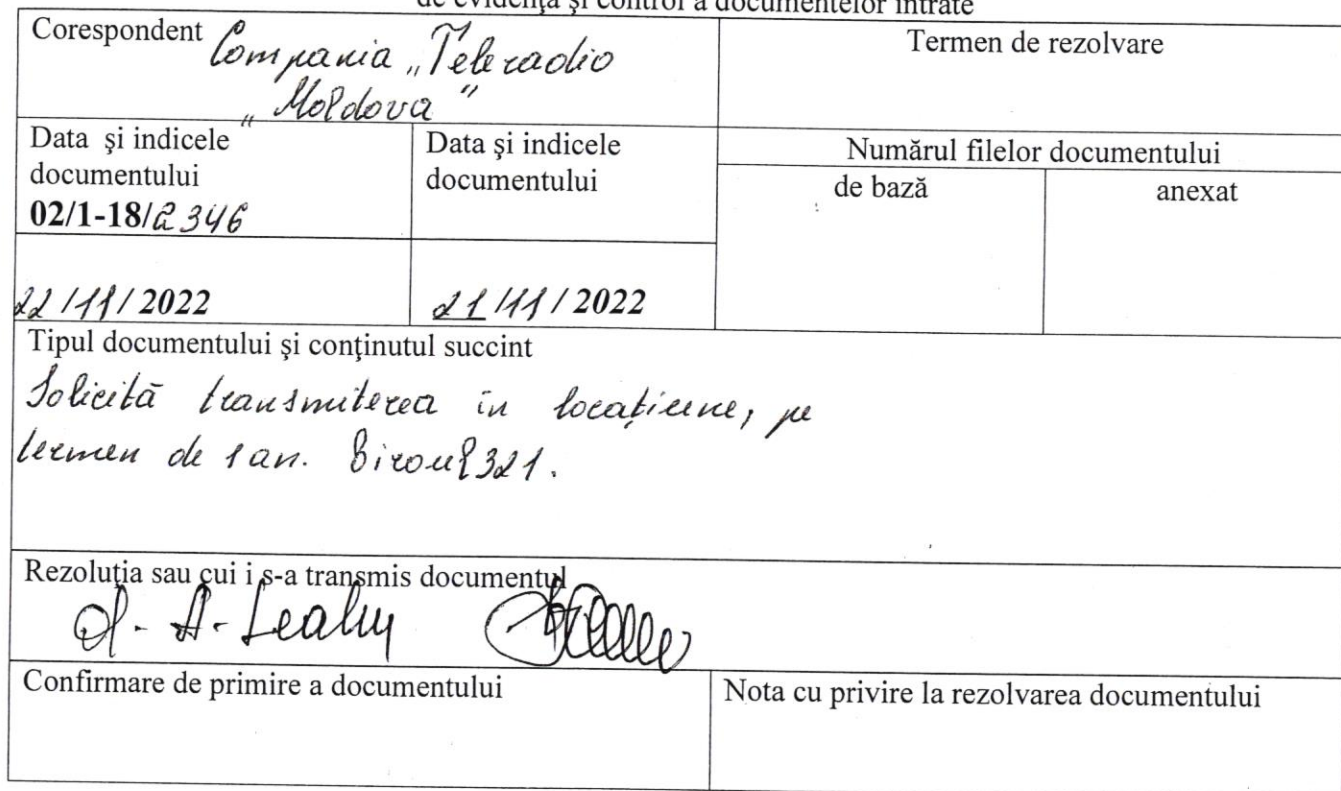 de evidenţa şi control a documentelor intrate
Corespondent Compania „Teleradio
„Moldova"
Termen de rezolvare
Data şi indicele
documentului
02/1-18/2346
Data şi indicele
documentului
Numărul filelor documentului
de bază
anexat
22/11/2022
21/11/2022
Tipul documentului şi conţinutul succint
Solicită transmiterea în locațiune, pe
termen de 1 an. Biroul 321.
Rezoluţia sau cui i s-a transmis documentul
A. Leahu
Confirmare de primire a documentului
Nota cu privire la rezolvarea documentului